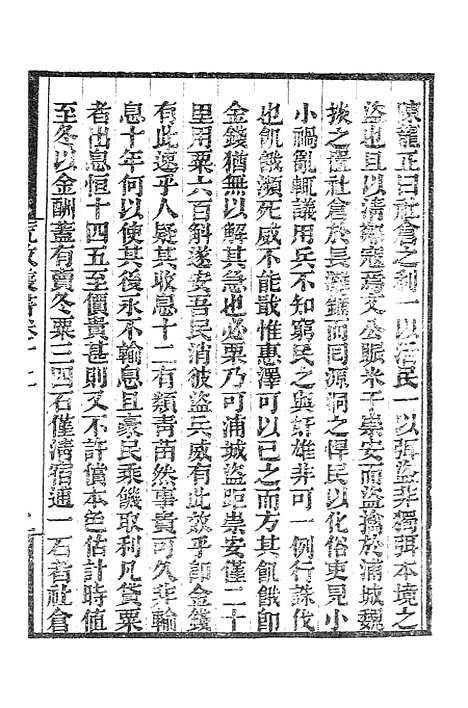 陳龍正曰社倉之利一以活民一以弭盜非獨弭本境之
盜也且以清鄰寇焉文公賑米于崇安而盜擒於浦城魏
掞之置社倉於長灘鋪而囘源洞之悍民以化俗吏見小
小禍亂輒議用兵不知窮民之與奸雄非可一例行誅伐
也飢餓瀕死威不能戢惟惠澤可以已之而方其飢餓卽
金錢猶無以解其急也必粟乃可浦城盜距崇安僅二十
里用粟六百斛遂安吾民消彼盜兵威有此效乎卽金錢
有此速乎人疑其收息十二有類青苗然事貴可久非輸
息十年何以使其後永不輸息且豪民乘饑取利凡貸粟
者出息恒十四五至價貴甚則又不許償本色估計時值
至冬以金酬蓋有賣冬粟三四石僅淸宿逋一石者社倉
荒政叢書卷十